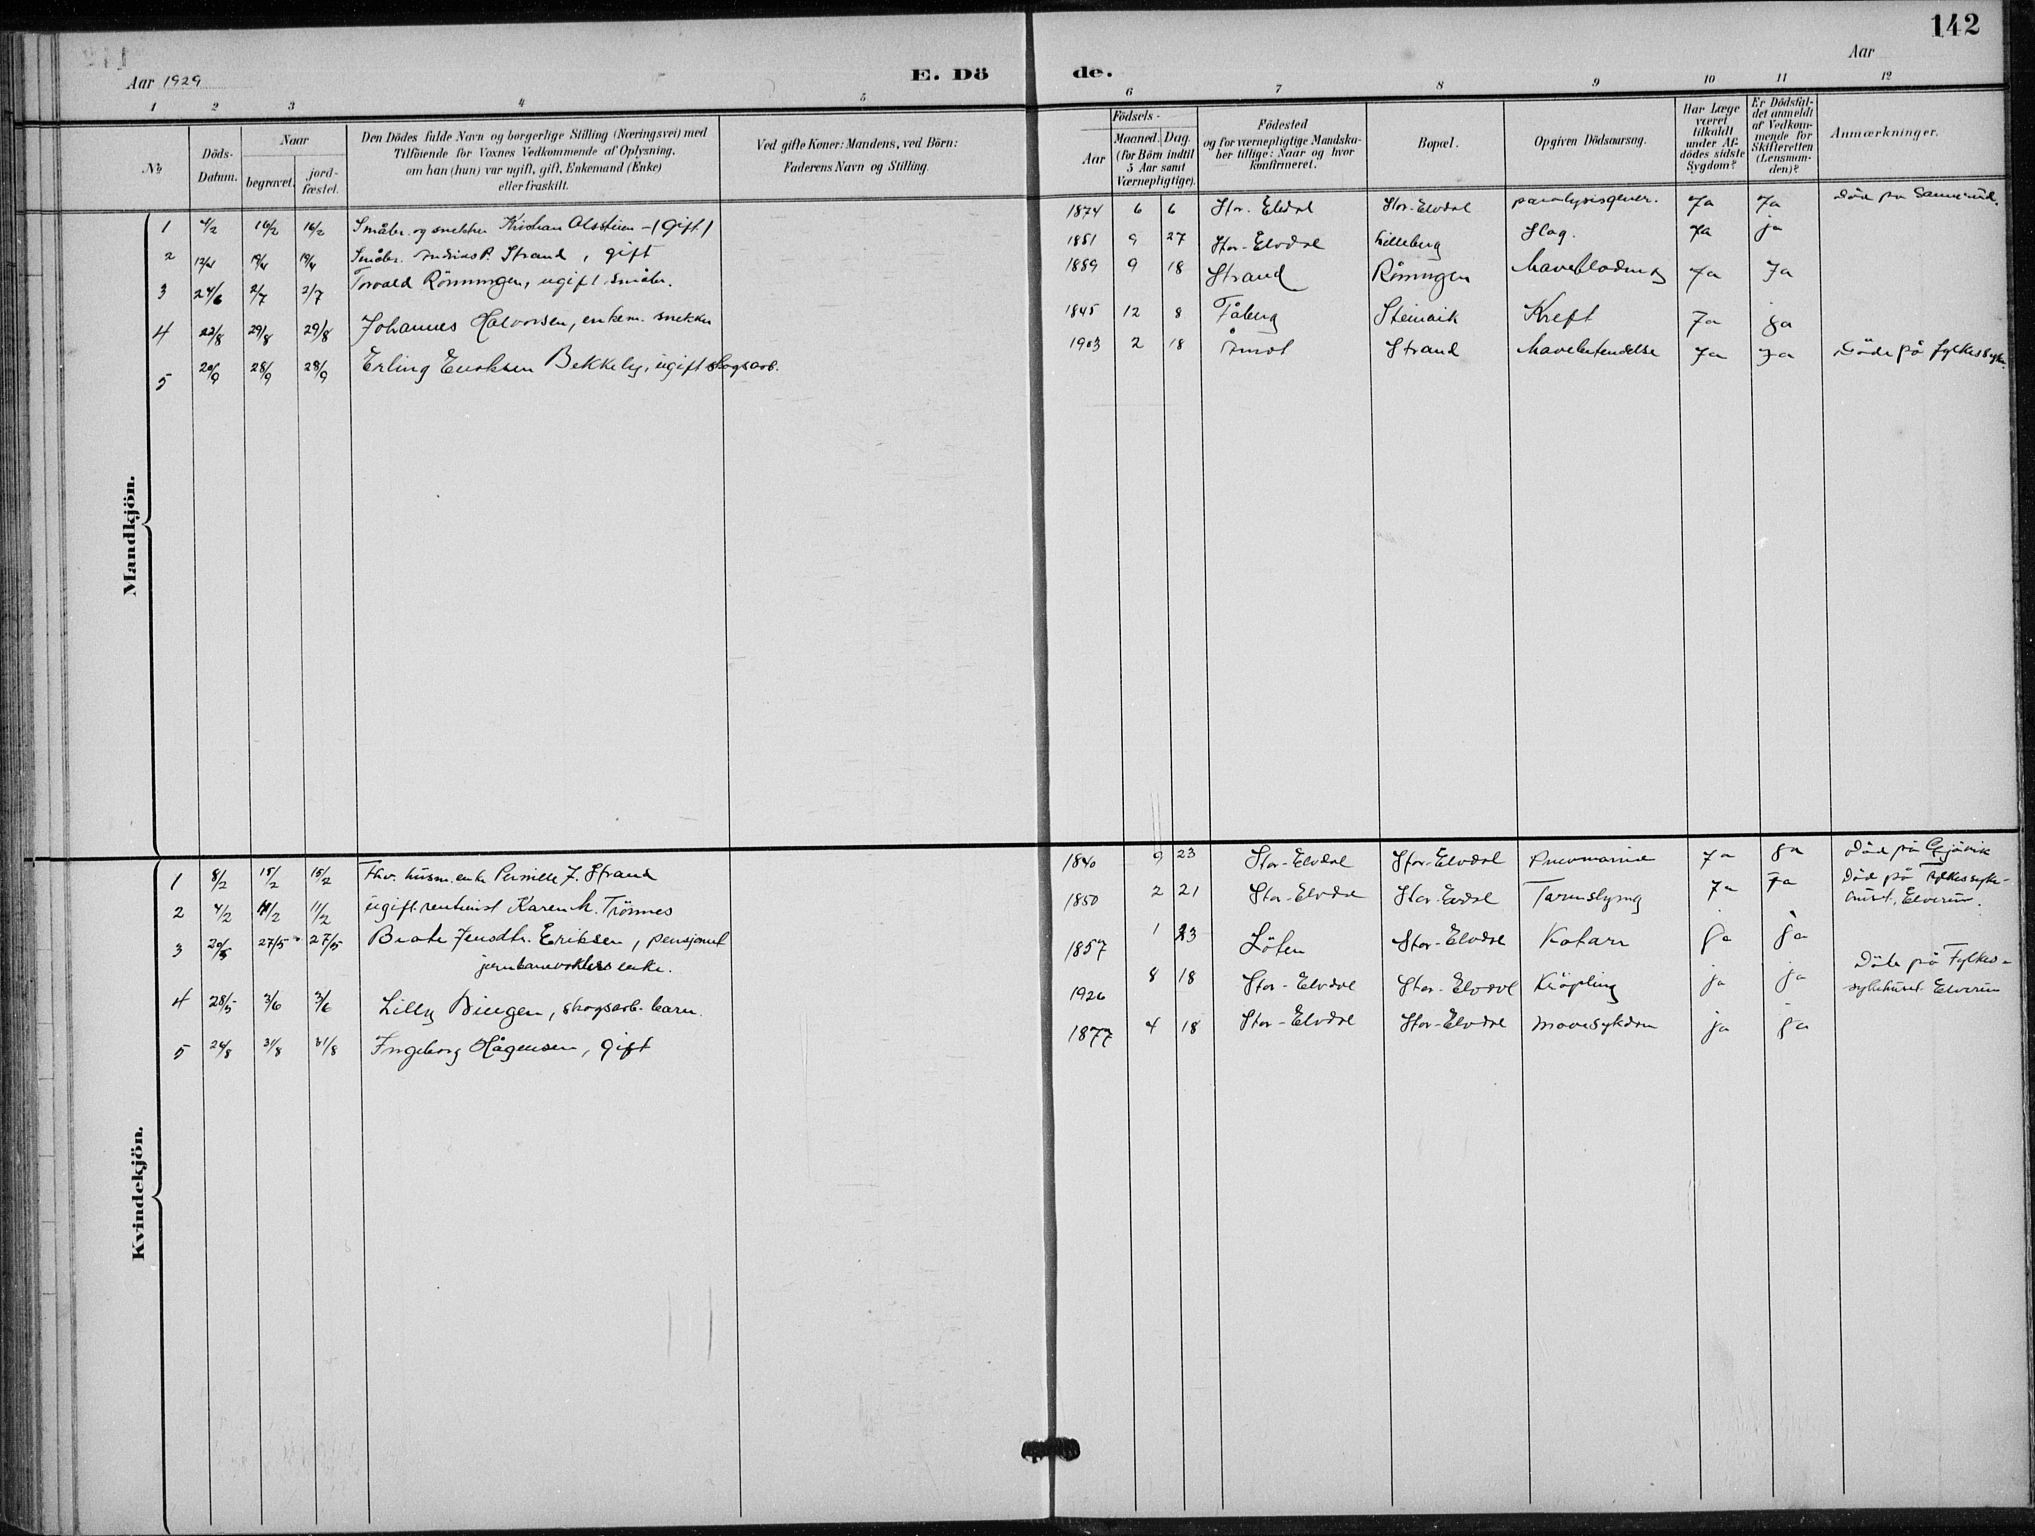 142
Aar 1929
E. Dö
de.
Aar
1 2 3 4 5 6 7 8 9 10 11 12
No
Döds-Datum.
Naar
begravet.
jord-fæstet.
Den Dödes fulde Navn og borgerlige Stilling (Næringsvei) med
Tilföiende for Voxnes Vedkommende af Oplysning,
om han (hun) var ugift, gift, Enkemand (Enke)
eller fraskilt.
Ved gifte Koner: Mandens, ved Börn:
Faderens Navn og Stilling.
Födsels-
Aar
Maaned. Dag.
(for Börn indtil
5 Aar samt
Værnepligtige).
Födested
og for værnepligtige Mandska-
ber tillige: Naar og hvor
konfirmeret.
Bopæl.
Opgiven Dödsaarsag.
Har Læge
været
tilkaldt
under Af-
dödes sidste
Sygdom?
Er Dödsfal-
det anmeldt
af Vedkom-
mende for
Skifteretten
(Lensman-
den)?
Anmærkninger.
Mandkjön.
1 4/2 16/2 16/2 Småbr. og snekker Kristian Olsstuen - (gift) 1874 6 6 Stor. Elvdal Stor-Elvdal paralysis gener. Ja Ja Död på Sannerud.
2 12/4 19/4 19/4 Småbr. Andreas P. Strand, gift 1851 9 27 Stor-Elvdal Lilleberg Slag. Ja ja
3 24/6 2/7 2/7 Torvald Rönningen, ugift småbr. 1889 9 18 Strand Rönningen Maveblødning Ja Ja
4 22/8 29/8 29/8 Johannes Halvorsen, enkem. snekker 1845 12 8 Fåberg Steinvik Kreft Ja ja
5 20/9 28/9 28/9 Erling Eriksen Bekkely, ugift skogsarb. 1903 2 18 Åmot Strand Mavebetendelse Ja Ja Döde på fylkessyk.
Kvindekjön.
1 8/2 15/2 15/2 Fhv. husm. enke Pernille J. Strand 1840 9 23 Stor-Elvdal Stor-Elvdal Pneumonia Ja ja Död på Gjövik
2 4/2 11/2 11/2 ugift rentenist Karen M. Trönnes 1850 2 21 Stor-Elvdal Stor-Evdal Tarmslyng Ja Ja Död på Fylkessyke-
huset, Elverum.
3 20/5 27/5 27/5 Beate Jensdtr. Eriksen, pensjonert 1857 1 23 Löten Stor-Elvdal Katarr ja ja
jernbanevokters enke.
4 28/5 3/6 3/6 Lilly Bingen, skogsarb. barn. 1926 8 18 Stor-Elvdal Stor-Elvdal Kröpling ja ja Döde på Fylkes-
sykehuset. Elverum
5 24/8 31/8 31/8 Ingeborg Hågensen, gift 1877 4 18 Stor-Elvdal Stor-Elvdal mavesykdom ja ja